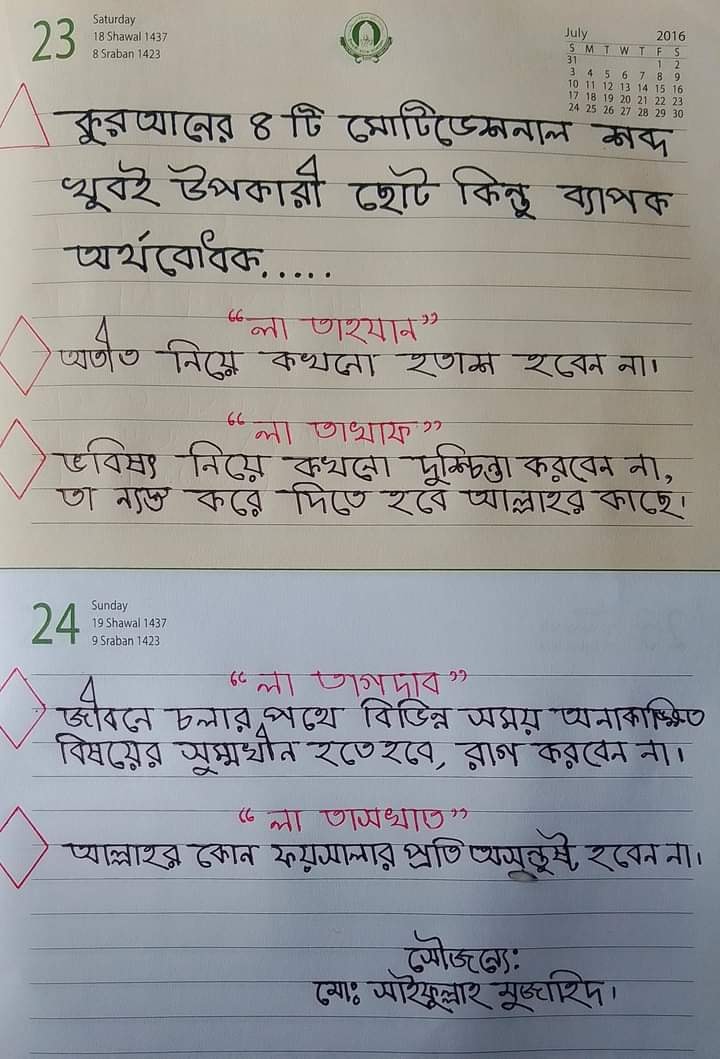 23
Saturday
18 Shawal 1437
8 Sraban 1423
July 2016
S M T W T F S
31 1 2
3 4 5 6 7 8 9
10 11 12 13 14 15 16
17 18 19 20 21 22 23
24 25 26 27 28 29 30
কুরআনের ৪ টি মোটিভেশনাল শব্দ
খুবই উপকারী ছোট কিন্তু ব্যাপক
অর্থবোধক.....
“লা তাহযান”
অতীত নিয়ে কখনো হতাশ হবেন না।
“লা তাখাফ”
ভবিষ্যৎ নিয়ে কখনো দুশ্চিন্তা করবেন না,
তা ন্যস্ত করে দিতে হবে আল্লাহর কাছে।
24
Sunday
19 Shawal 1437
9 Sraban 1423
“লা তাগদাব”
জীবনে চলার পথে বিভিন্ন সময় অনাকাঙ্ক্ষিত
বিষয়ের সুম্মখীন হতে হবে, রাগ করবেন না।
“লা তাসখাত”
আল্লাহর কোন ফয়সালার প্রতি অসন্তুষ্ট হবেন না।
সৌজন্যে:
মোঃ সাইফুল্লাহ মুজাহিদ।